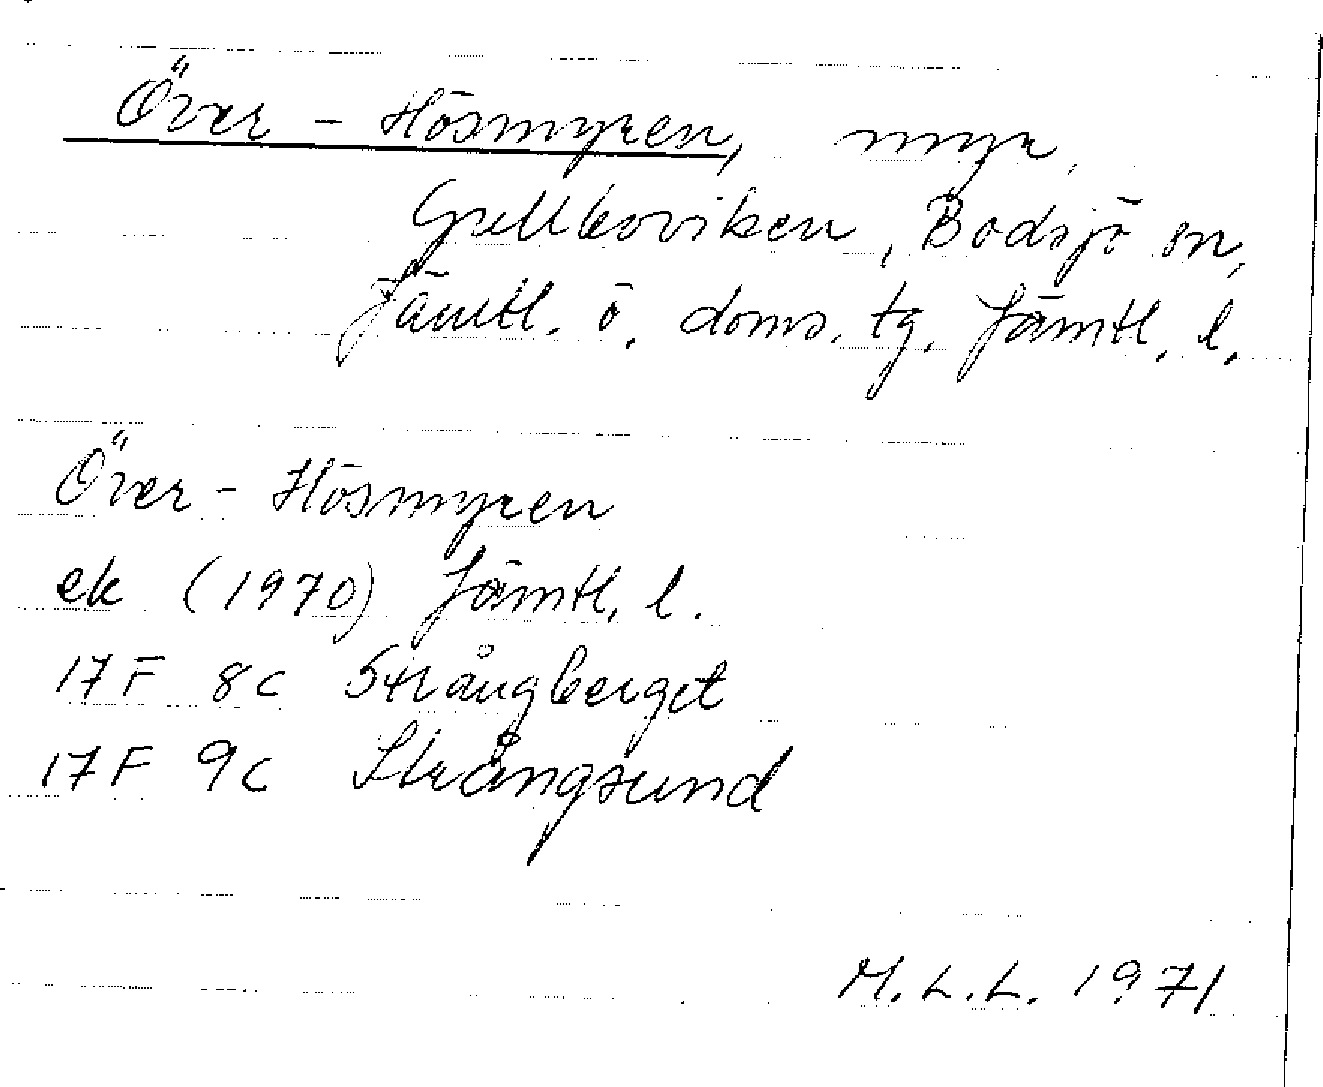 Över-Hösmyren, myr,
Grellboviken, Bodsjö sn,
Jämtl. ö. doms. tg. Jämtl. l.
Över-Hösmyren
ek (1970) Jämtl. l.
17F 8c Strångberget
17F 9c Strångsund
M.L.L. 1971